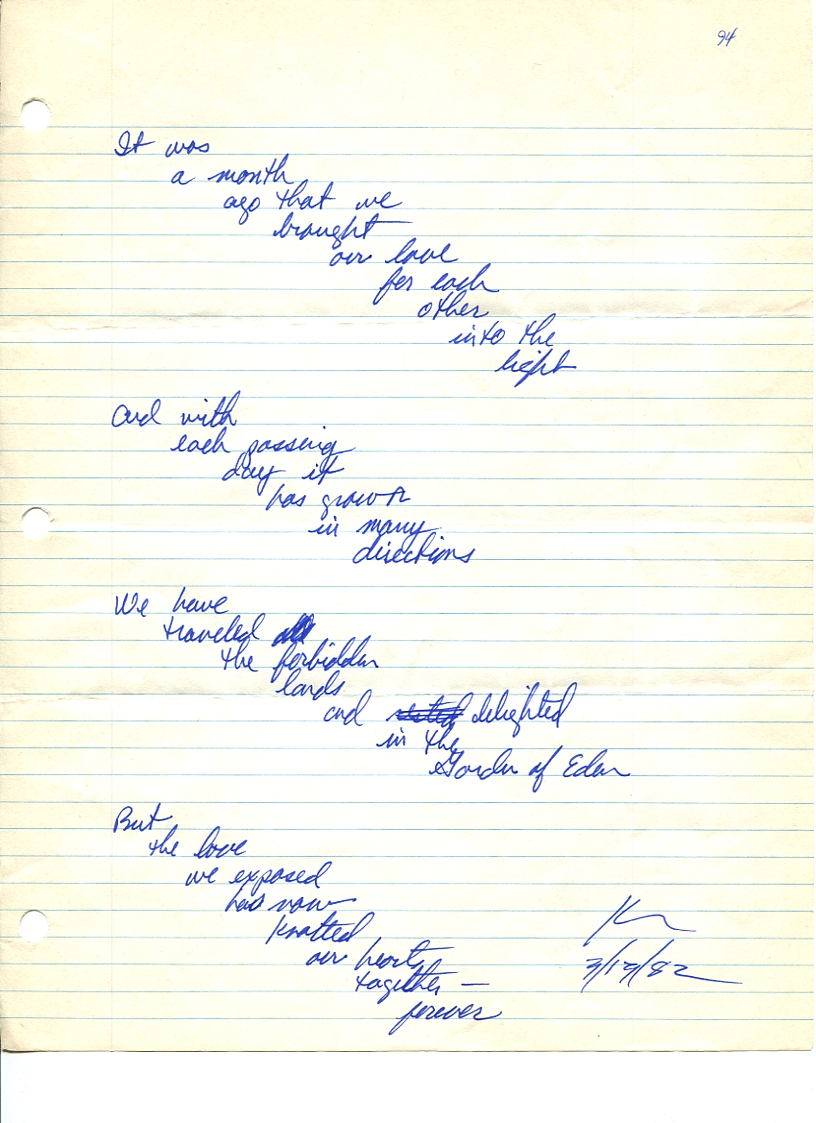 94
It was
a month
ago that we
brought
our love
for each
other
into the
light
And with
each passing
day it
has grown
in many
directions
We have
traveled
the forbidden
lands
and rested delighted
in the
Garden of Eden
But
the love
we exposed
has now
knotted
our hearts
together —
forever